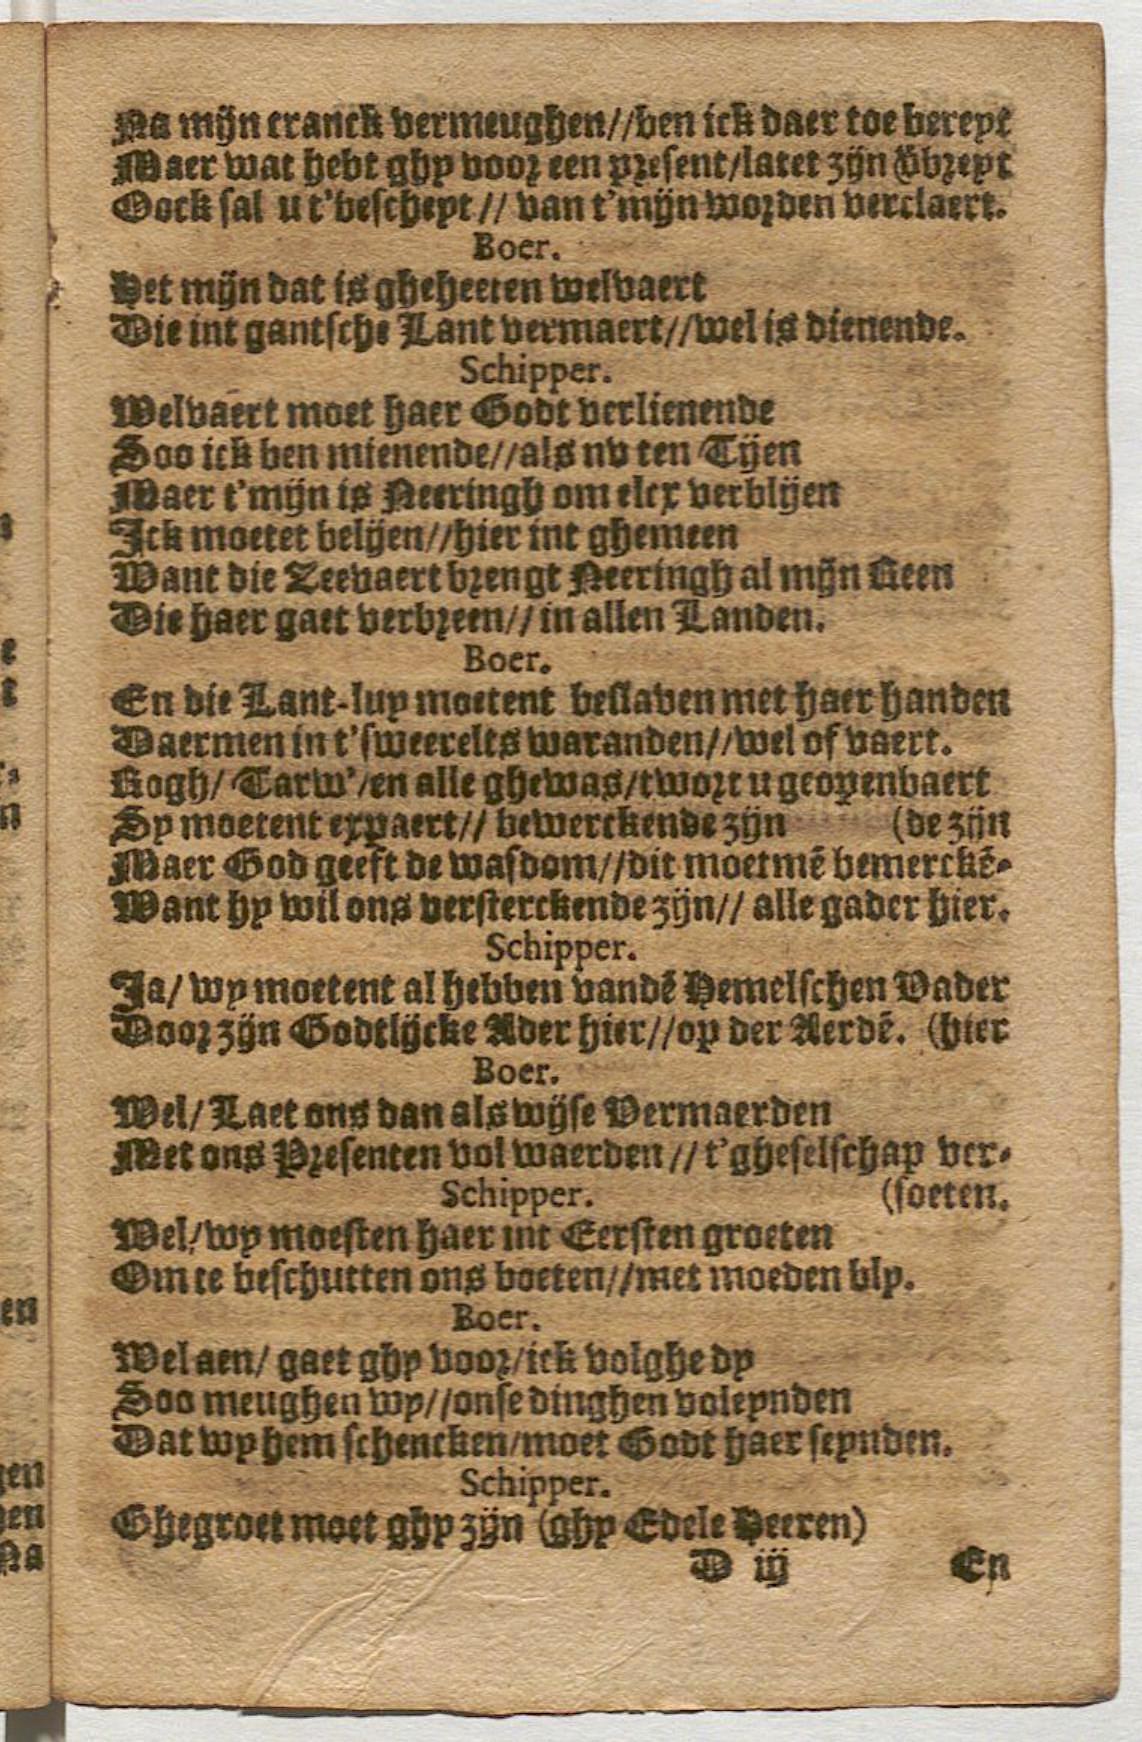 Na mijn cranck vermeughen//ben ick daer toe bereyt
Maer wat hebt ghy voor een present/latet zijn ôbreyt
Oock sal u t'bescheyt // van t'mijn worden verclaert.
Boer.
Het mijn dat is gheheeten welvaert
Die int gantsche Lant vermaert//wel is dienende.
Schipper.
Welvaert moet haer Godt verlienende
Soo ick ben mienende//als nv ten Tijen
Maer t'mijn is Neeringh om elcx verblijen
Ick moetet belijen//hier int ghemeen
Want die Zeevaert brengt Neeringh al mijn Reen
Die haer gaet verbreen// in allen Landen.
Boer.
En die Lant-luy moetent beslaven met haer handen
Daermen in t'sweerelts waranden//wel of vaert.
Rogh/ Tarw'/en alle ghewas/twort u geopenbaert
Sy moetent expaert// bewerckende zijn (de zijn
Maer God geeft de wasdom//dit moetmē bemerckē-
Want hy wil ons versterckende zijn// alle gader hier.
Schipper.
Ja/ wy moetent al hebben vandē Hemelschen Vader
Door zijn Godtlijcke Ader hier//op der Aerdē. (hier
Boer.
Wel/ Laet ons dan als wijse Vermaerden
Met ons Presenten vol waerden // t'gheselschap ver-
Schipper. (soeten.
Wel/wy moesten haer int Eersten groeten
Om te beschutten ons boeten//met moeden bly.
Boer.
Wel aen/ gaet ghy voor/ick volghe dy
Soo meughen wy//onse dinghen voleynden
Dat wy hem schencken/moet Godt haer seynden.
Schipper.
Ghegroet moet ghy zijn (ghy Edele Heeren)
D iij En
n
e
t
n
en
gen
hen
Na